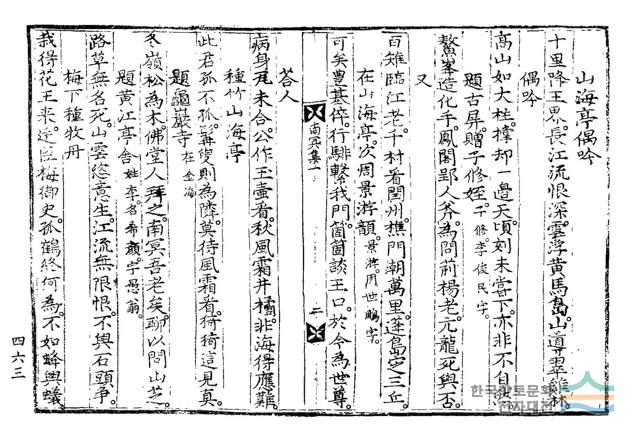 山海亭偶吟
十里降王界長江流恨深雲浮黃馬島山導翠雞林
偶吟
高山如大柱撑却一邊天頃刻未嘗下亦非不自然
題古屏贈子修姪 子修李俊民字
鰲峯造化手鳳閣郢人斧為問前楊老元龍死與否
又
百雉臨江老千村看閏州樵門潮萬里蓬島定三丘
在山海亭次周景游韻 景游周世鵬字
可矣豊基倅行騑繫我門箇箇談王口於今為世尊
南冥集一
二
答人
病身 未合公作玉壺看秋風霜井橘非海得應難
種竹山海亭
此君孤不孤髯叟則為隣莫待風霜看猗猗這見真
題龜巖寺 在金海
冬嶺松為木佛堂人拜之南冥吾老矣聊以問山芝
題黃江亭舍 姓李名希顔字愚翁
路草無名死山雲恣意生江流無限恨不與石頭爭
梅下種牧丹
栽得花王來廷臣梅御史孤鶴終何為不如蜂與蟻
四六三
한국향토문화
전자대전